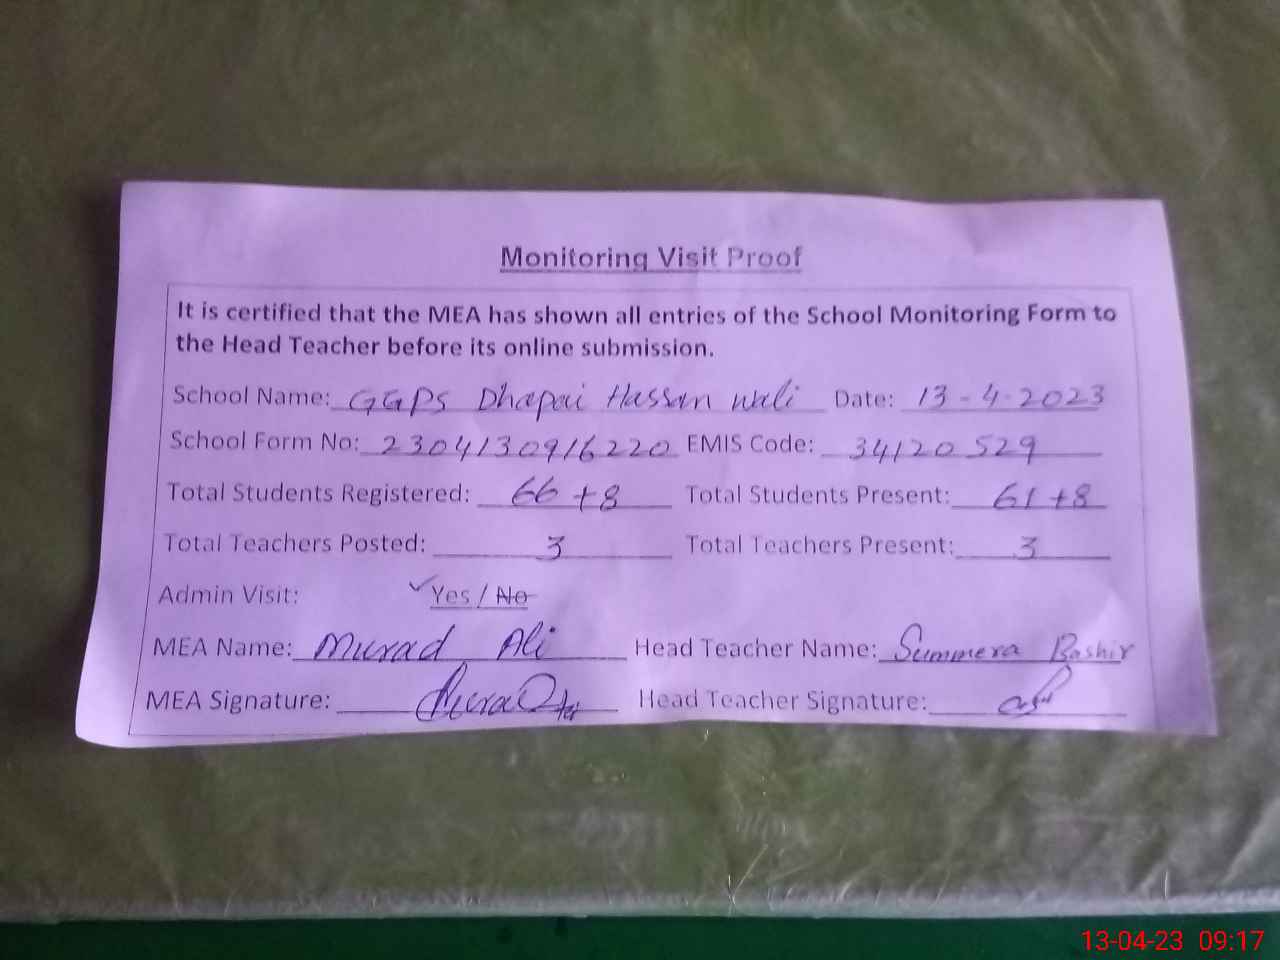 Monitoring Visit Proof
It is certified that the MEA has shown all entries of the School Monitoring Form to
the Head Teacher before its online submission.
School Name: GGPS Dhapai Hassan Wali Date: 13-4-2023
School Form No: 2304130916220 EMIS Code: 34120529
Total Students Registered: 66+8 Total Students Present: 61+8
Total Teachers Posted: 3 Total Teachers Present: 3
Admin Visit: ✓Yes / No
MEA Name: Murad Ali Head Teacher Name: Summera Bashir
MEA Signature: Head Teacher Signature:
13-04-23 09:17